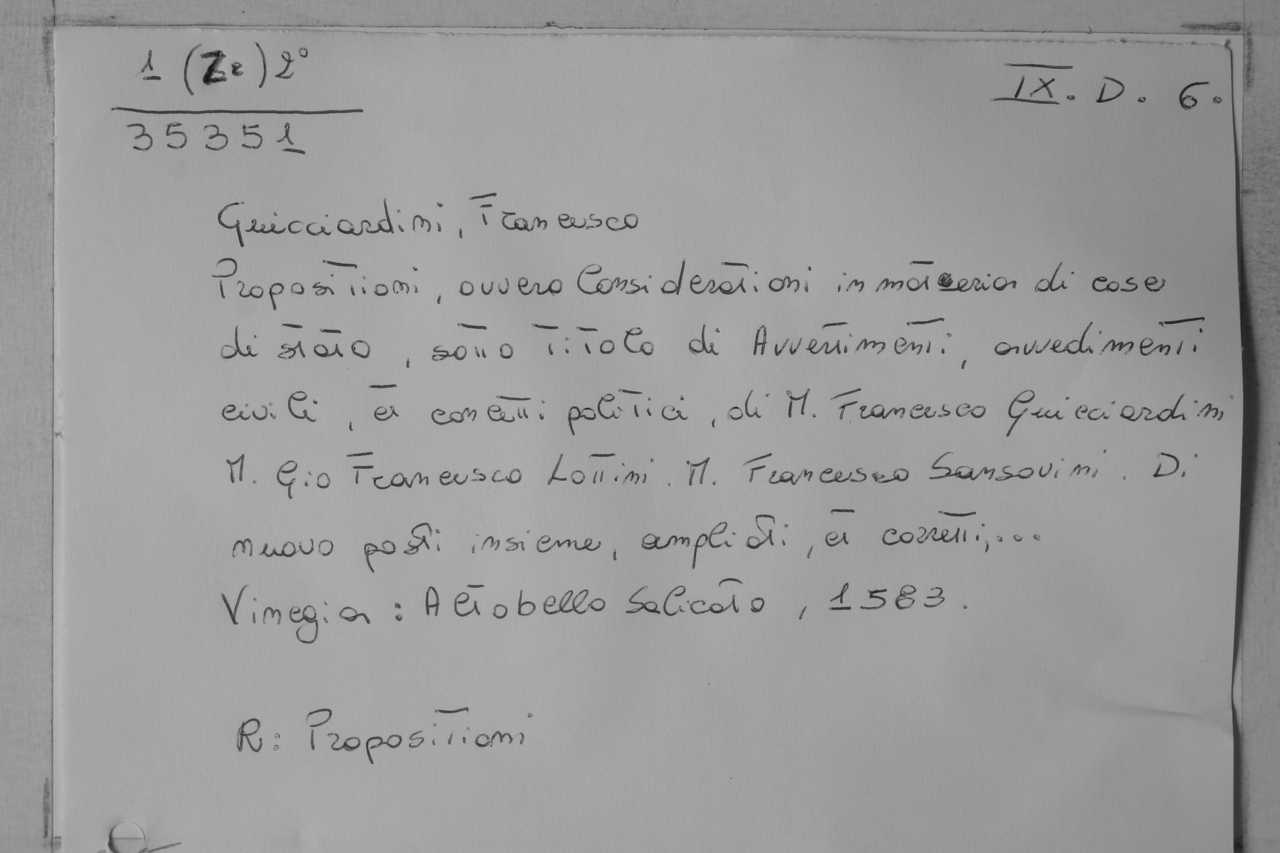 1 (Ze) 2°
35351
IX. D. 6.
Guicciardini, Francesco
Propositioni, ovvero Considerationi in materia di cose
di stato, sotto titolo di Avvertimenti, avvedimenti
civili, et concetti politici, di M. Francesco Guicciardini
M. Gio Francesco Lottini. M. Francesco Sansovini. Di
nuovo posti insieme, ampliati, et corretti,...
Vinegia: Altobello Salicato, 1583.
R: Propositioni